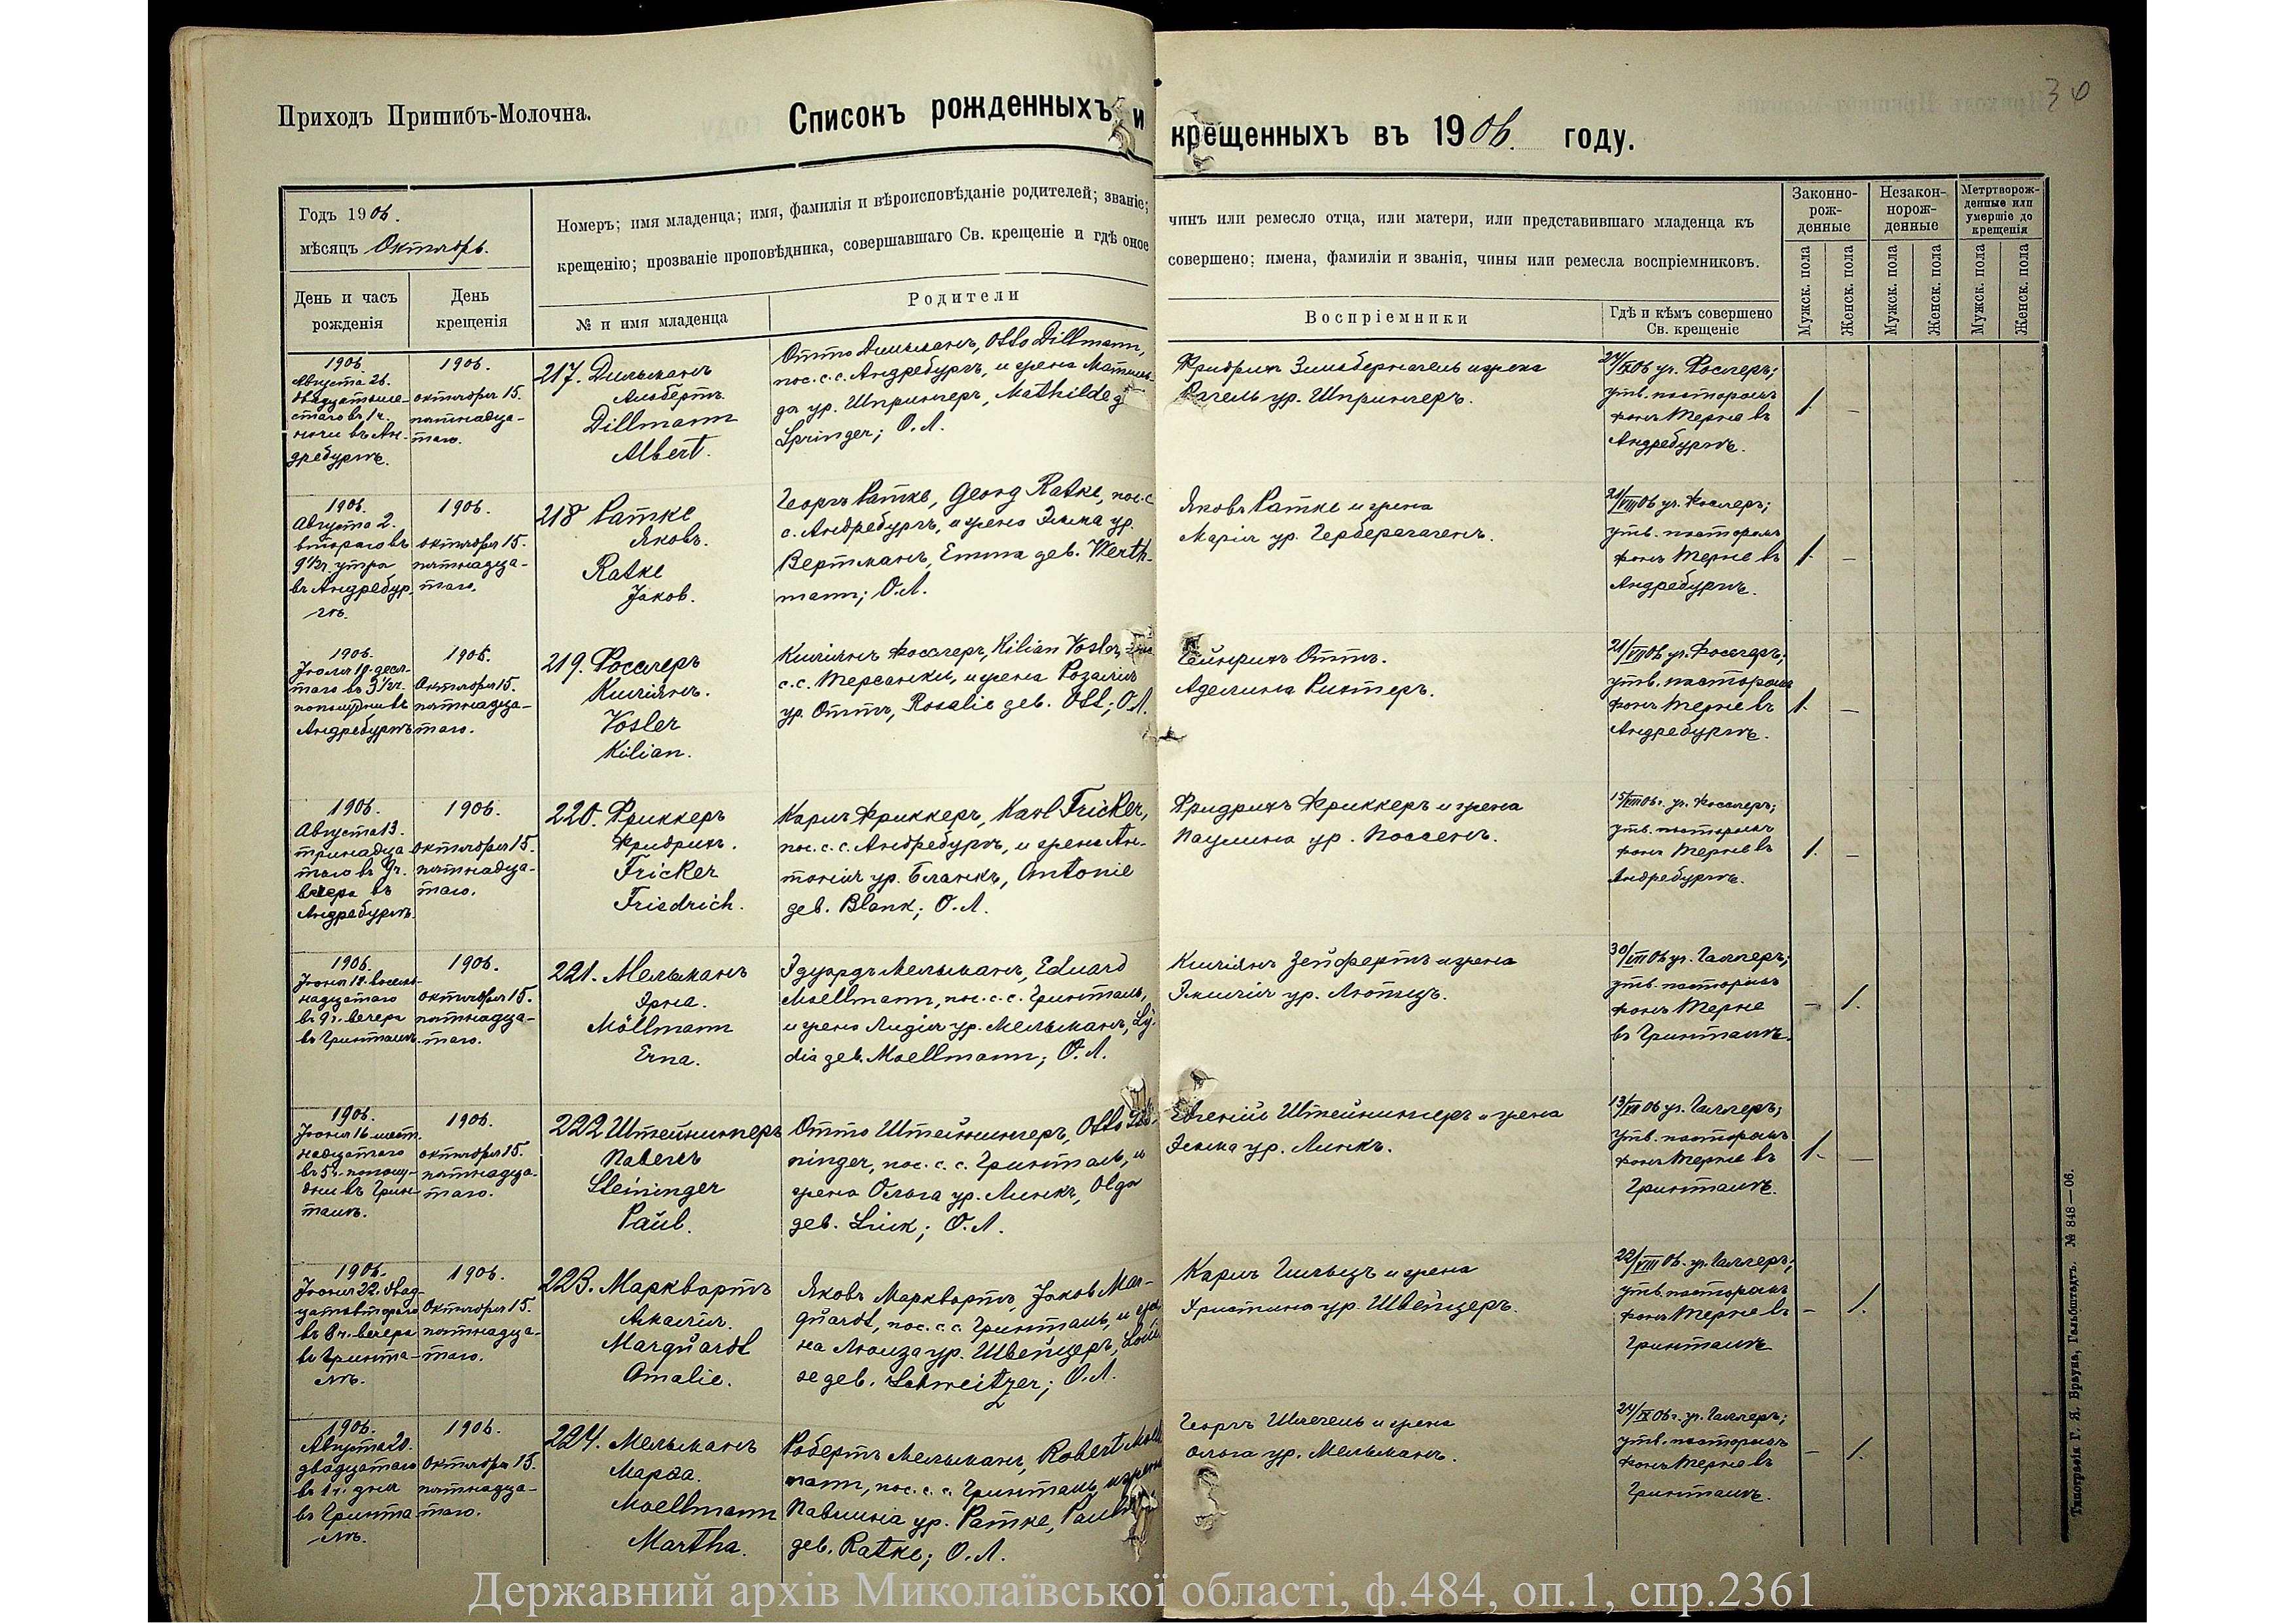 30
Приходъ Пришибъ-Молочна.
Списокъ рожденныхъ и крещенныхъ въ 1906. году.
Годъ 1906.
мѣсяцъ Октябрь.
Номеръ; имя младенца; имя, фамилія и вѣроисповѣданіе родителей; званіе; чинъ или ремесло отца, или матери, или представившаго младенца къ
крещенію; прозваніе проповѣдника, совершавшаго Св. крещеніе и гдѣ оное совершено; имена, фамиліи и званія, чины или ремесла воспріемниковъ.
Законно-
рож-
денные
Незакон-
норож-
денные
Метртворож-
денные или
умершіе до
крещенія
День и часъ
рожденія
День
крещенія
№ и имя младенца
Родители
Воспріемники
Гдѣ и кѣмъ совершено
Св. крещеніе
Мужск. пола
Женск. пола
Мужск. пола
Женск. пола
Мужск. пола
Женск. пола
1906.
Августа 26.
двадцатоше-
стаго въ 1 ч.
ночи въ Ан-
дребургѣ.
1906.
октября 15.
пятнадца-
таго.
217. Дильманъ
Альбертъ.
Dillmann
Albert.
Отто Дильманъ, Otto Dillmann,
пос. с. с. Андребургъ, и жена Матиль-
да ур. Шпрингеръ, Mathilde g
Springer; О.Л.
Фридрихъ Зильбернагель и жена
Рахель ур. Шпрингеръ.
24/IX06 уч. Фослеръ;
утв. пасторомъ
фонъ Терне въ
Андребургѣ.
1. –
1906.
Августа 2.
втораго въ
9½ч. утра
въ Андребур-
гѣ.
1906.
октября 15.
пятнадца-
таго.
218 Ратке
Яковъ.
Ratke
Jakob.
Георгъ Ратке, Georg Ratke, пос. с.
с. Андребургъ, и жена Эмма ур.
Вертманъ, Emma geb. Werth-
mann; О.Л.
Яковъ Ратке и жена
Марія ур. Герберзагенъ.
21/VIII06 уч. Фослеръ;
утв. пасторомъ
фонъ Терне въ
Андребургѣ.
1. –
1906.
Іюля 10. деся-
таго въ 3½ч.
пополудни въ
Андребургѣ
1906.
Октября 15.
пятнадца-
таго.
219. Фосслеръ
Киліянъ.
Vosler
Kilian.
Киліянъ Фосслеръ, Kilian Vosler, пос
с. с. Терсанки, и жена Розалія
ур. Оттъ, Rosalie geb. Ott; О.Л.
Гейнрихъ Оттъ.
Аделина Рихтеръ.
21/VIII06 уч. Фосслеръ;
утв. пасторомъ
фонъ Терне въ
Андребургѣ.
1. –
1906.
Августа 13.
тринадца-
таго въ 9ч.
вечера въ
Андребургѣ.
1906.
Октября 15.
пятнадца-
таго.
220. Фриккеръ
Фридрихъ.
Fricker
Friedrich.
Карлъ Фриккеръ, Karl Fricker,
пос. с. с. Андребургъ, и жена Ан-
тонія ур. Бланкъ, Antonie
geb. Blank; О.Л.
Фридрихъ Фриккеръ и жена
Паулина ур. Поссенъ.
15/VIII06г. уч. Фосслеръ;
утв. пасторомъ
фонъ Терне въ
Андребургѣ.
1. –
1906.
Іюня 18. восем-
надцатаго
въ 9ч. вечера
въ Гринталѣ.
1906.
октября 15.
пятнадца-
таго.
221. Мельманъ
Эрна.
Möllmann
Erna.
Эдуардъ Мельманъ, Eduard
Moellmann, пос. с. с. Гринталь,
и жена Лидія ур. Мельманъ, Ly-
dia geb. Moellmann; О.Л.
Киліянъ Зейфертъ и жена
Эмилія ур. Лютцъ.
30/VII06 уч. Галлеръ;
утв. пасторомъ
фонъ Терне
въ Гринталѣ.
– 1.
1906.
Іюня 16 шест-
надцатаго
въ 5ч. пополу-
дни въ Грин-
талѣ.
1906.
октября 15.
пятнадца-
таго.
222 Штейнингеръ
Павелъ
Steininger
Paul.
Отто Штейнингеръ, Otto Stei-
ninger, пос. с. с. Гринталь, и
жена Ольга ур. Линкъ, Olga
geb. Link; О.Л.
Евгеній Штейнингеръ и жена
Эмма ур. Линкъ.
13/VII06 уч. Галлеръ;
утв. пасторомъ
фонъ Терне въ
Гринталѣ.
1. –
1906.
Іюня 22. двад-
цатовтораго
въ 8ч. вечера
въ Гринта-
лѣ.
1906.
Октября 15.
пятнадца-
таго.
223. Марквартъ
Амалія.
Marquardt
Amalie.
Яковъ Марквартъ, Jakob Mar-
quardt, пос. с. с. Гринталь, и же-
на Луиза ур. Швейцеръ, Loui
se geb. Schweitzer; О.Л.
Карлъ Гильцъ и жена
Христина ур. Швейцеръ.
22/VIII06. уч. Галлеръ;
утв. пасторомъ
фонъ Терне въ
Гринталѣ
– 1.
1906.
Августа 20.
двадцатаго
въ 1ч. дня
въ Гринта
лѣ.
1906.
Октября 15.
пятнадца-
таго.
224. Мельманъ
Марѳа.
Moellmann
Martha.
Робертъ Мельманъ, Robert Moell
mann, пос. с. с. Гринталь, и жена
Павлина ур. Ратке, Paulin
geb. Ratke; О.Л.
Георгъ Шлегель и жена
Ольга ур. Мельманъ.
24/IX06г. уч. Галлеръ;
утв. пасторомъ
фонъ Терне въ
Гринталѣ.
– 1.
Типографія Г. Я. Брауна, Гальбштадтъ. № 848—06.
Державний архів Миколаївської області, ф.484, оп.1, спр.2361